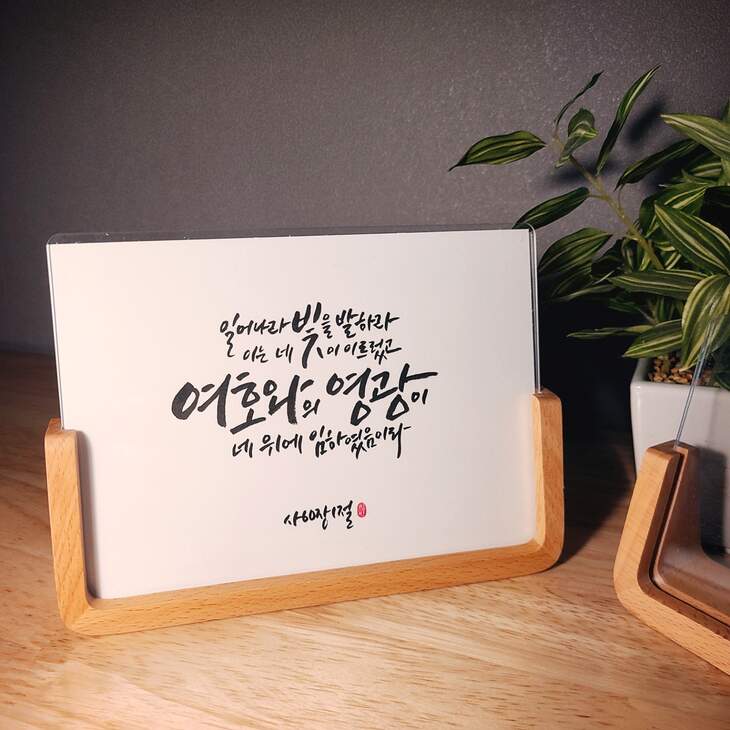 일어나라 빛을 발하라
이는 네 빛이 이르렀고
여호와의 영광이
네 위에 임하였음이라
사60장1절